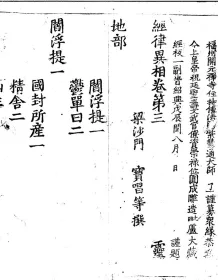 福州開元禪寺住持傳法慧通大師了一謹募衆縁恭爲
今上皇帝祝延聖壽文武官僚資崇祿位圓成雕造毗盧大藏
經板一副旹紹興戊辰閏八月 日 謹題
經律異相卷第三 靈
梁沙門 寶唱等 撰
地部
閻浮提一
鬱單曰二
閻浮提一
國封所産一
精舍二